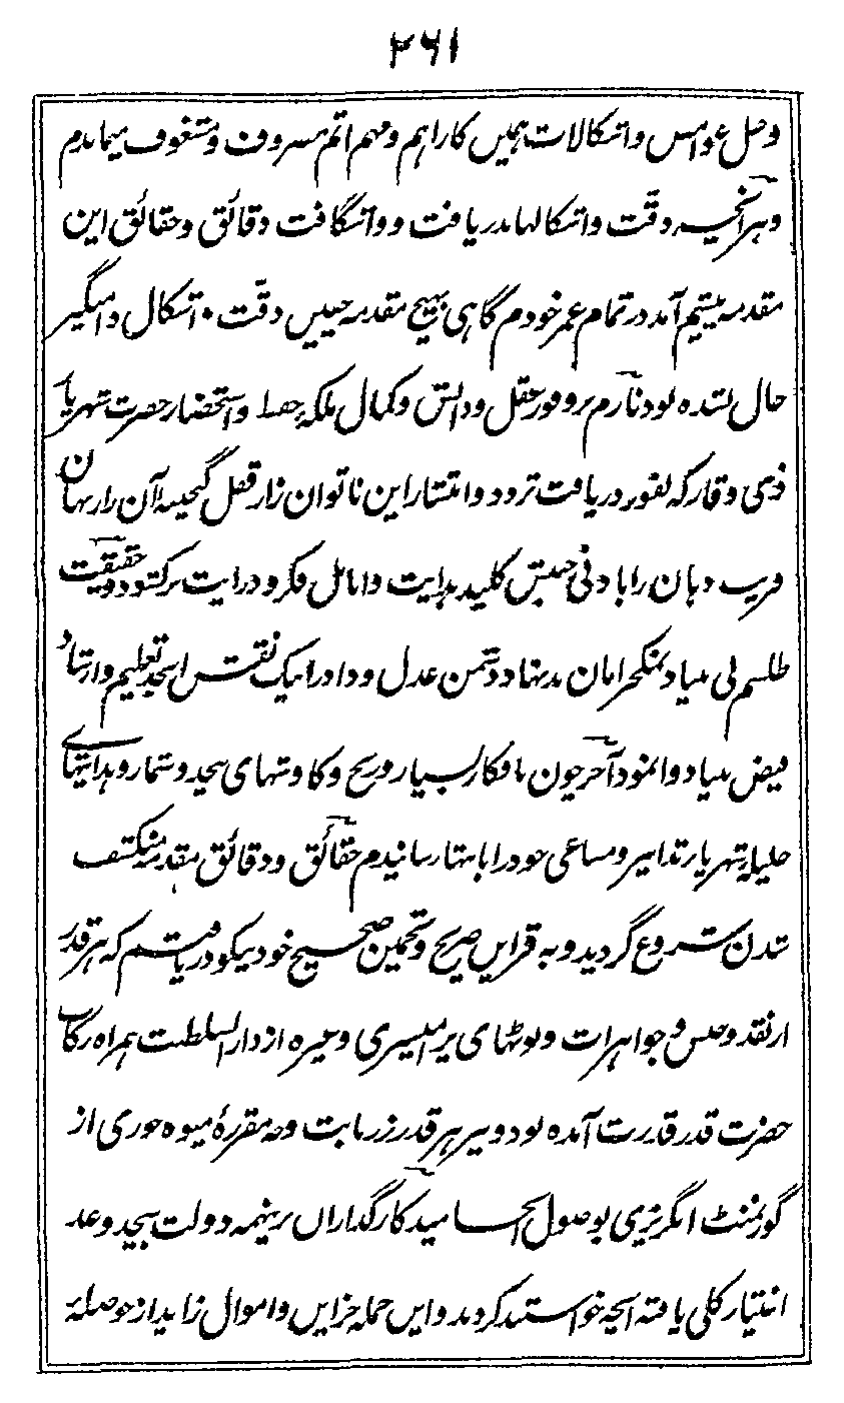 ۲۶۱
وحل غوامس واشکالات ہمیں کار اہم ومہم اتم مسروف ومشغوف میماندم
وہر آنچہ دقّت واشکالہا بدریافت ووانگافت دقائق وحقائق این
مقدمہ پیشم آمد در تمام عمر خودم گاہی بہیچ مقدمہ چنیں دقّت و اشکال دامنگیر
حال نشدہ بود نازم بر وفور عقل ودانش وکمال ملکۂ حفظ واستحضار حضرت شہریار
ذی وقار کہ بفور دریافت تردد وانتشار این ناتوان زار قفل گنجینۂ آن راز نہان
فریب دہان را بادنی جنبش کلید ہدایت وانامل فکر ودرایت برکشود وحقیقت
طلسم بی بنیاد نمکحرامان بدنہاد دشمن عدل وداد را بیک نقش ابجد تعلیم وارشاد
فیض بنیاد وانمود آخر چون بافکار بسیار وریج وکاوشہای بیحد وشمار وہدایتہای
جلیلۂ شہریار تدابیر ومساعی خود را بانتہا رسانیدم حقائق ودقائق مقدمہ منکشف
شدن شروع گردید وبہ قراین صریح وتخمین صحیح خود نیکو دریافتم کہ ہر قدر
از نقد وجنس وجواہرات ونوٹہای پرامیسری وغیرہ از دار السلطنت ہمراہ رکاب
حضرت قدر قدرت آمدہ بود ونیز ہر قدر زر بابت وجہ مقررۂ میوہ خوری از
گورنمنٹ انگریزی بوصول انجامید کارگذاراں برینہمہ دولت بیحد وعد
اختیار کلی یافتہ آنچہ خواستند کردند وایں جملہ خزاین واموال زاید از حوصلۂ